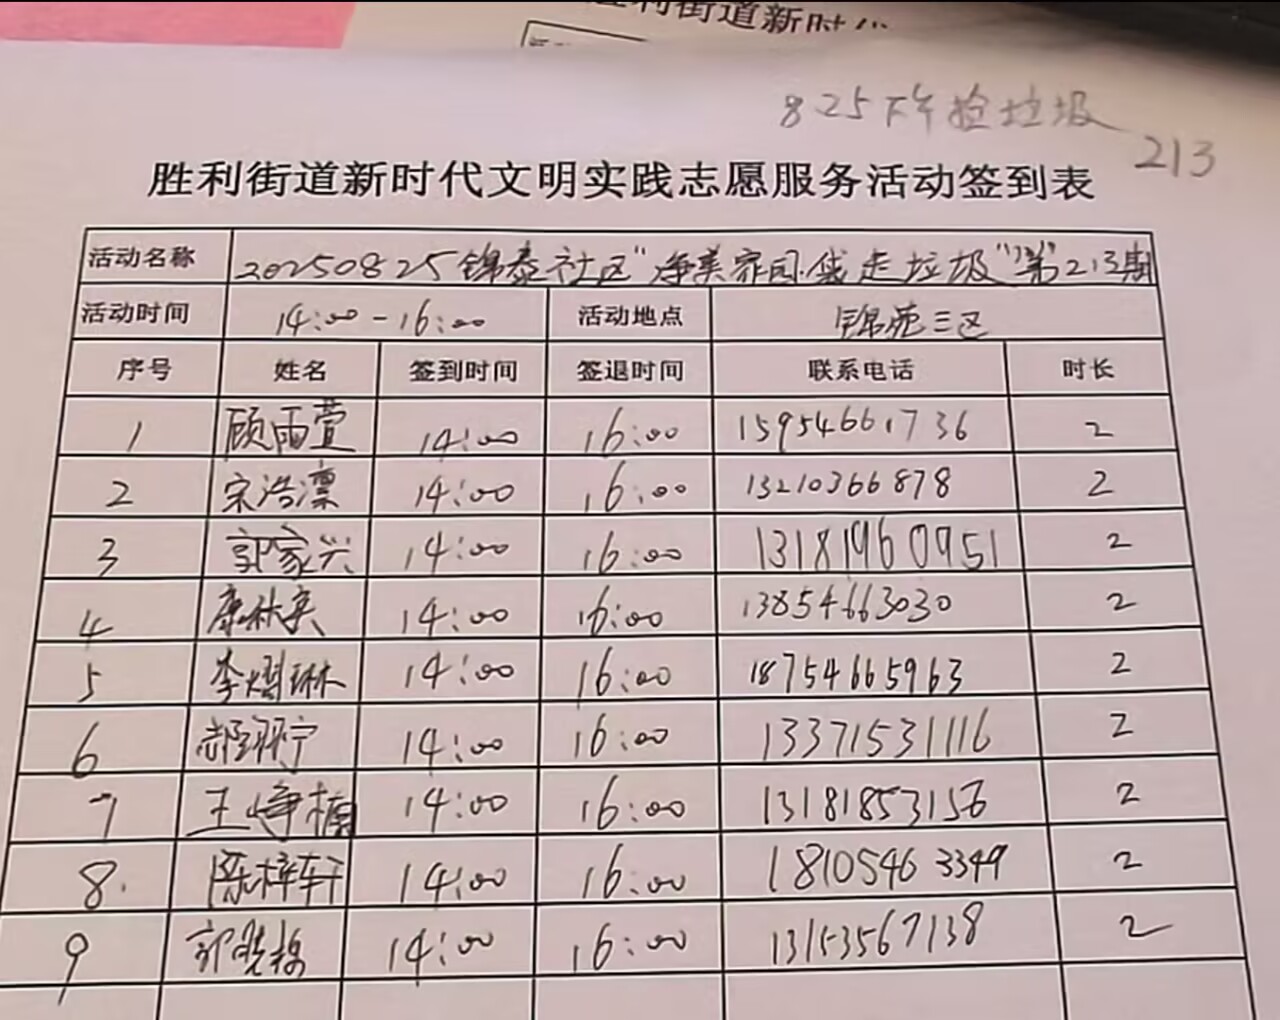 胜利街道新时代
825下午捡垃圾
213
胜利街道新时代文明实践志愿服务活动签到表
活动名称 20250825锦泰社区"净美家园.袋走垃圾"第213期
活动时间 14:00-16:00 活动地点 锦苑三区
序号 姓名 签到时间 签退时间 联系电话 时长
1 顾雨萱 14:00 16:00 15954661736 2
2 宋浩凛 14:00 16:00 13210366878 2
3 郭家兴 14:00 16:00 13181960951 2
4 康林奕 14:00 16:00 13854663030 2
5 李熠琳 14:00 16:00 18754665963 2
6 郝翊宁 14:00 16:00 13371531116 2
7 王峥楠 14:00 16:00 13181853156 2
8. 陈梓轩 14:00 16:00 18105463349 2
9 郭晓 14:00 16:00 13153567138 2